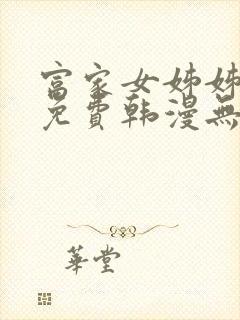 富家女姊姊
免費韩漫無
華堂